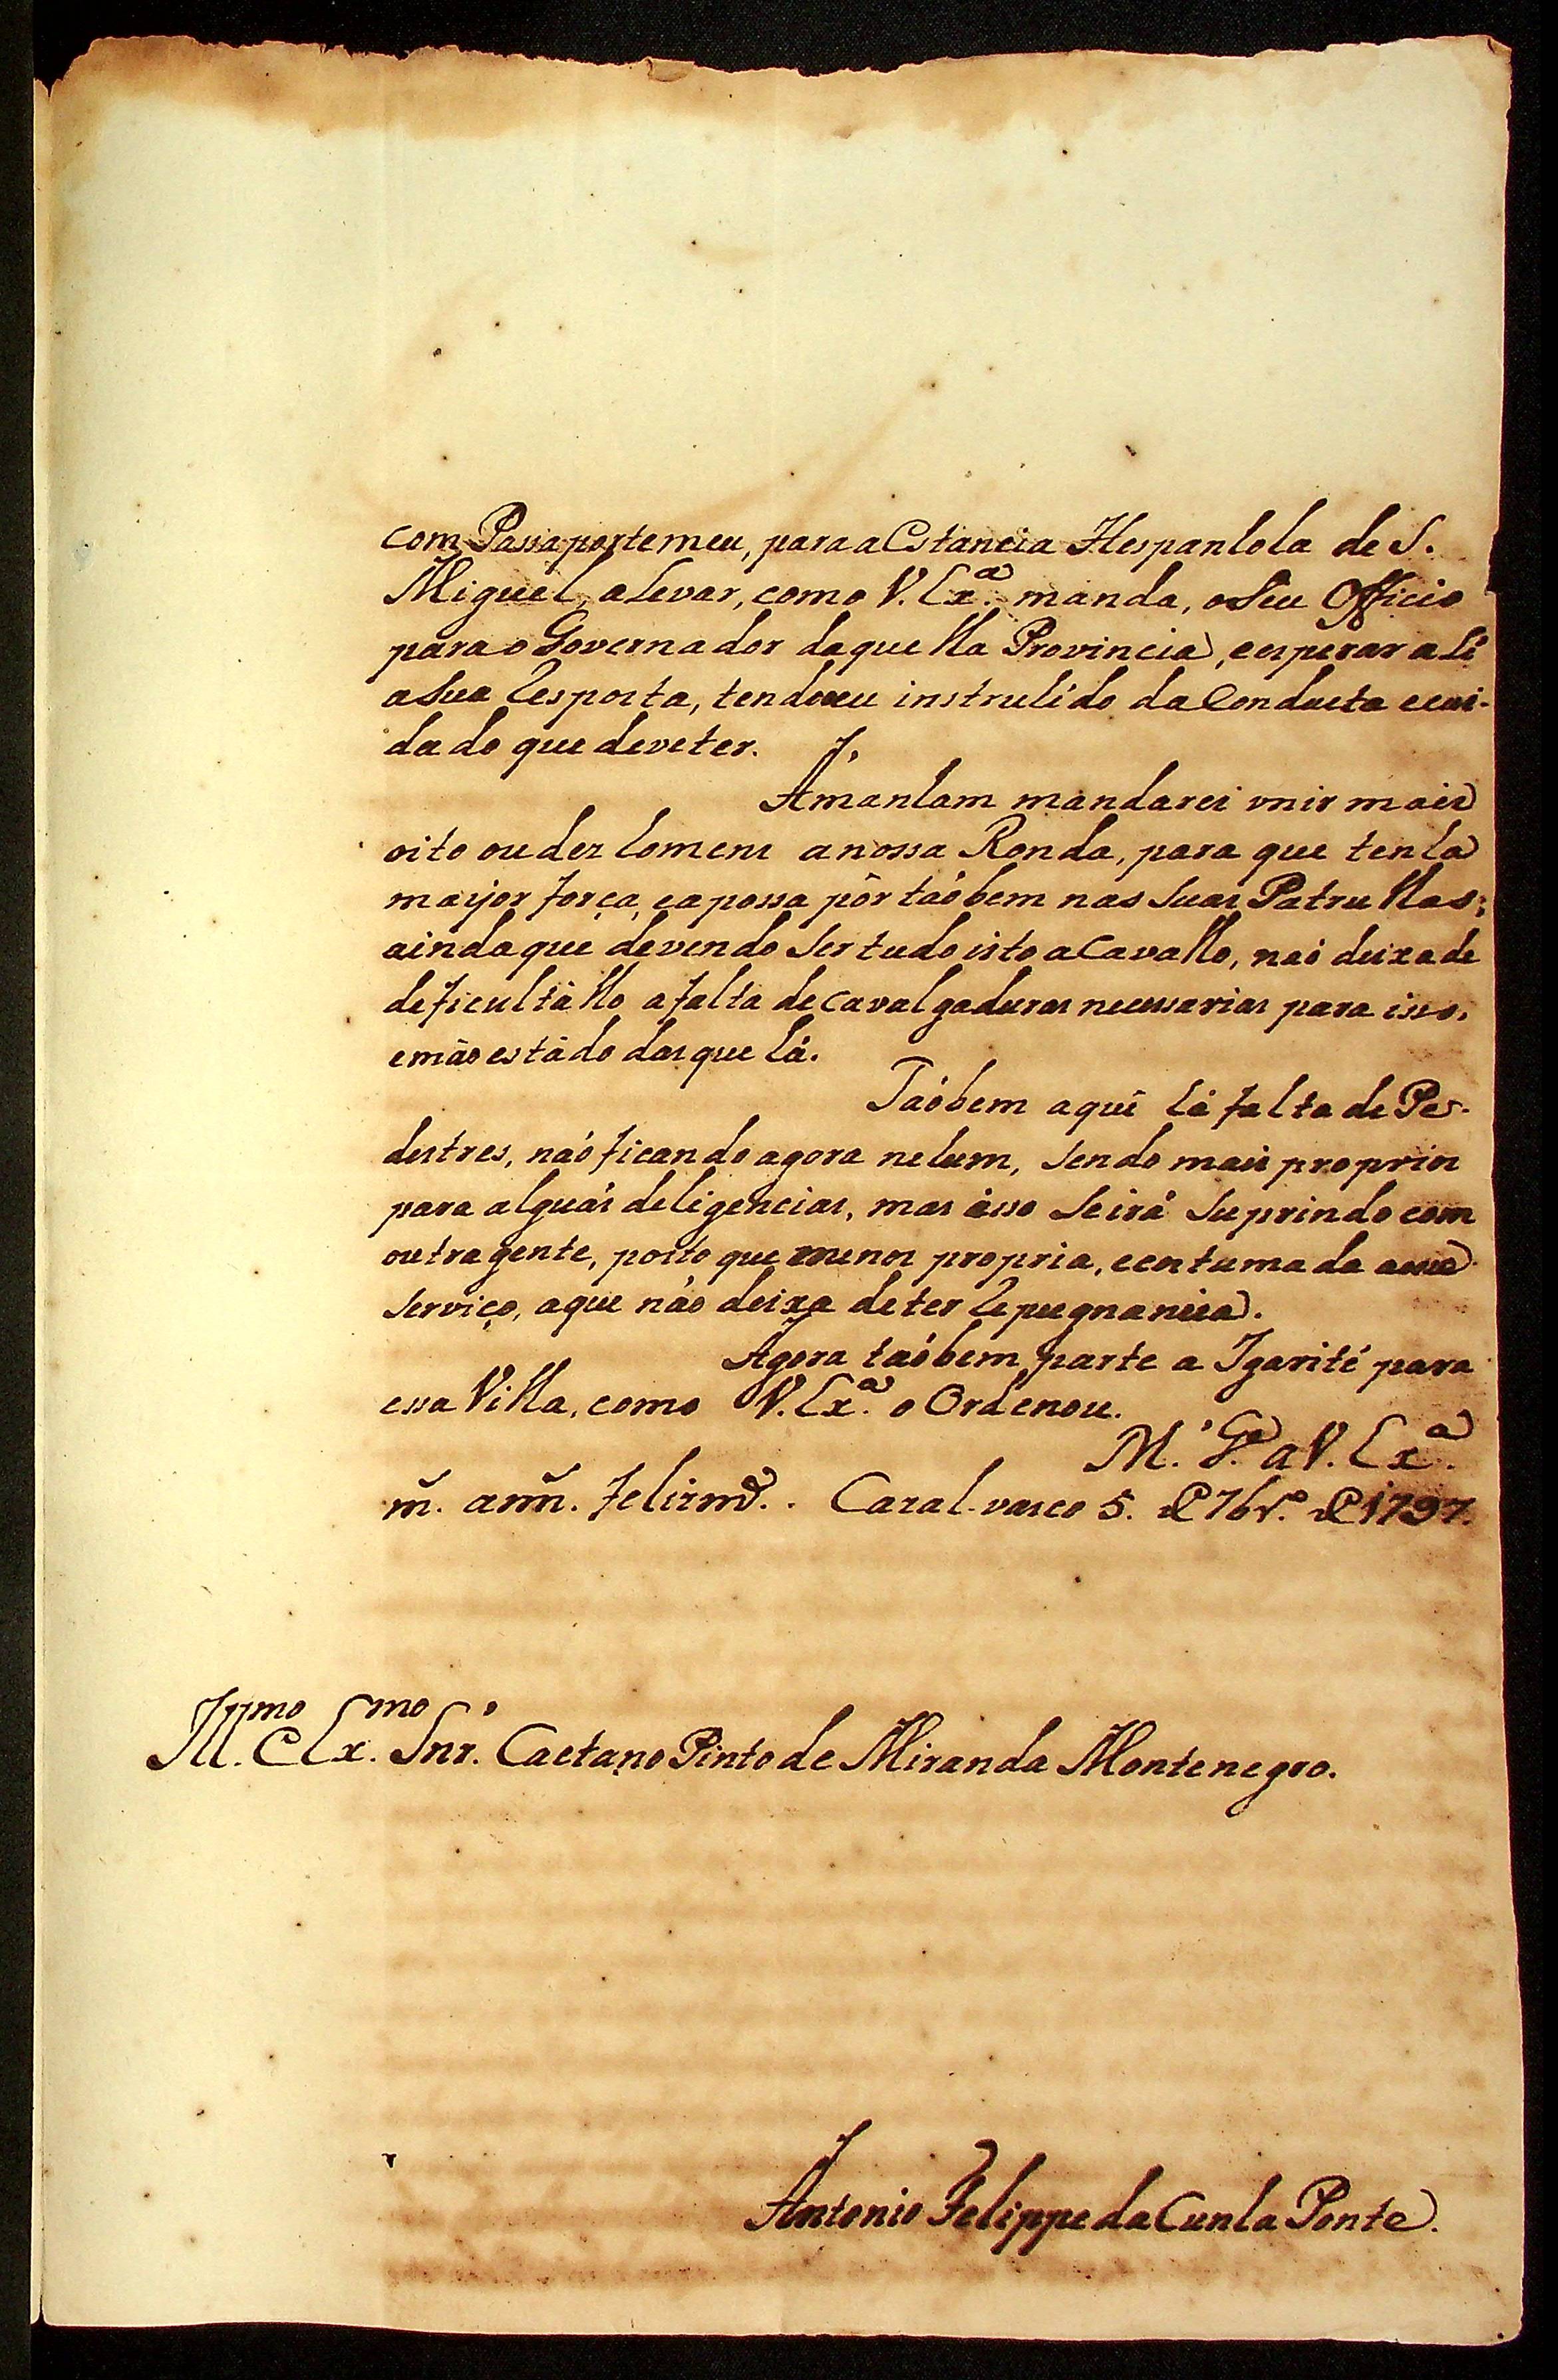 com Passaporte meu, para a Estancia Hespanhola de S.
Miguel, a levar, como V. Exª. manda, o seu Officio
para o Governador daquella Provincia, e esperar ali
a sua resposta, tendo eu instruhido da conducta e cui-
dado que deve ter.
Amanham mandarei unir mais
oito ou dez homens a nossa Ronda, para que tenha
maijor força, e a possa pôr taobem nas suas Patrullas;
ainda que devendo ser tudo isto a cavallo, naó deixa de
deficultallo a falta de cavalgaduras necessarias para isso,
e mão estádo das que há.
Taóbem aquí há falta de Pe-
destres, naó ficando agora nehum, sendo mais proprios
para alguás deligencias, mas isso se irá suprindo com
outra gente, posto que menos propria, e costumada a esse
serviço, a que não deixa de ter repugnancia.
Agora taóbem parte a Igarité para
essa Villa, como V. Exª. o Ordenou.
D.ˢ G.ᵉ a V. Exª.
m. ann. felizmᵉ. Cazal-vasco 5. de 7br.º de 1797.
Ill.mo e Ex.mo Snr. Caetano Pinto de Miranda Montenegro.
Antonio Felippe da Cunha Ponte.